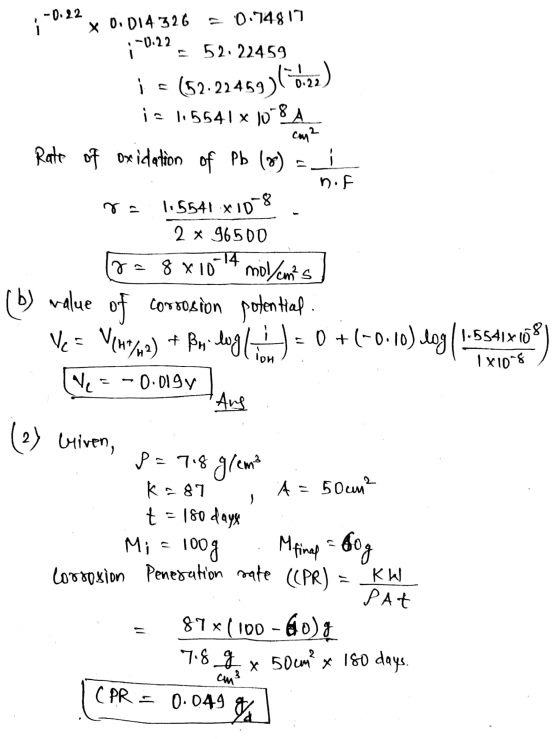 i^-0.22 × 0.014326 = 0.74817
i^-0.22 = 52.22459
i = (52.22459)^(-1/0.22)
i = 1.5541 × 10^-8 A/cm²
Rate of oxidation of Pb (r) = i/n.F
r = 1.5541 × 10^-8 / 2 × 96500
r = 8 × 10^-14 mol/cm² s
(b) value of corrosion potential.
Vc = V(H+/H2) + βH. log(i/i0H) = 0 + (-0.10) log(1.5541×10^-8 / 1×10^-8)
Vc = -0.019V
Ans
(2) Given,
ρ = 7.8 g/cm³
K = 87 , A = 50cm²
t = 180 days
Mi = 100g Mfinal = 60g
Corroxion Peneration rate (CPR) = KW/ρAt
= 87×(100-60)g
7.8 g/cm³ × 50cm² × 180 days.
CPR = 0.049 g/d